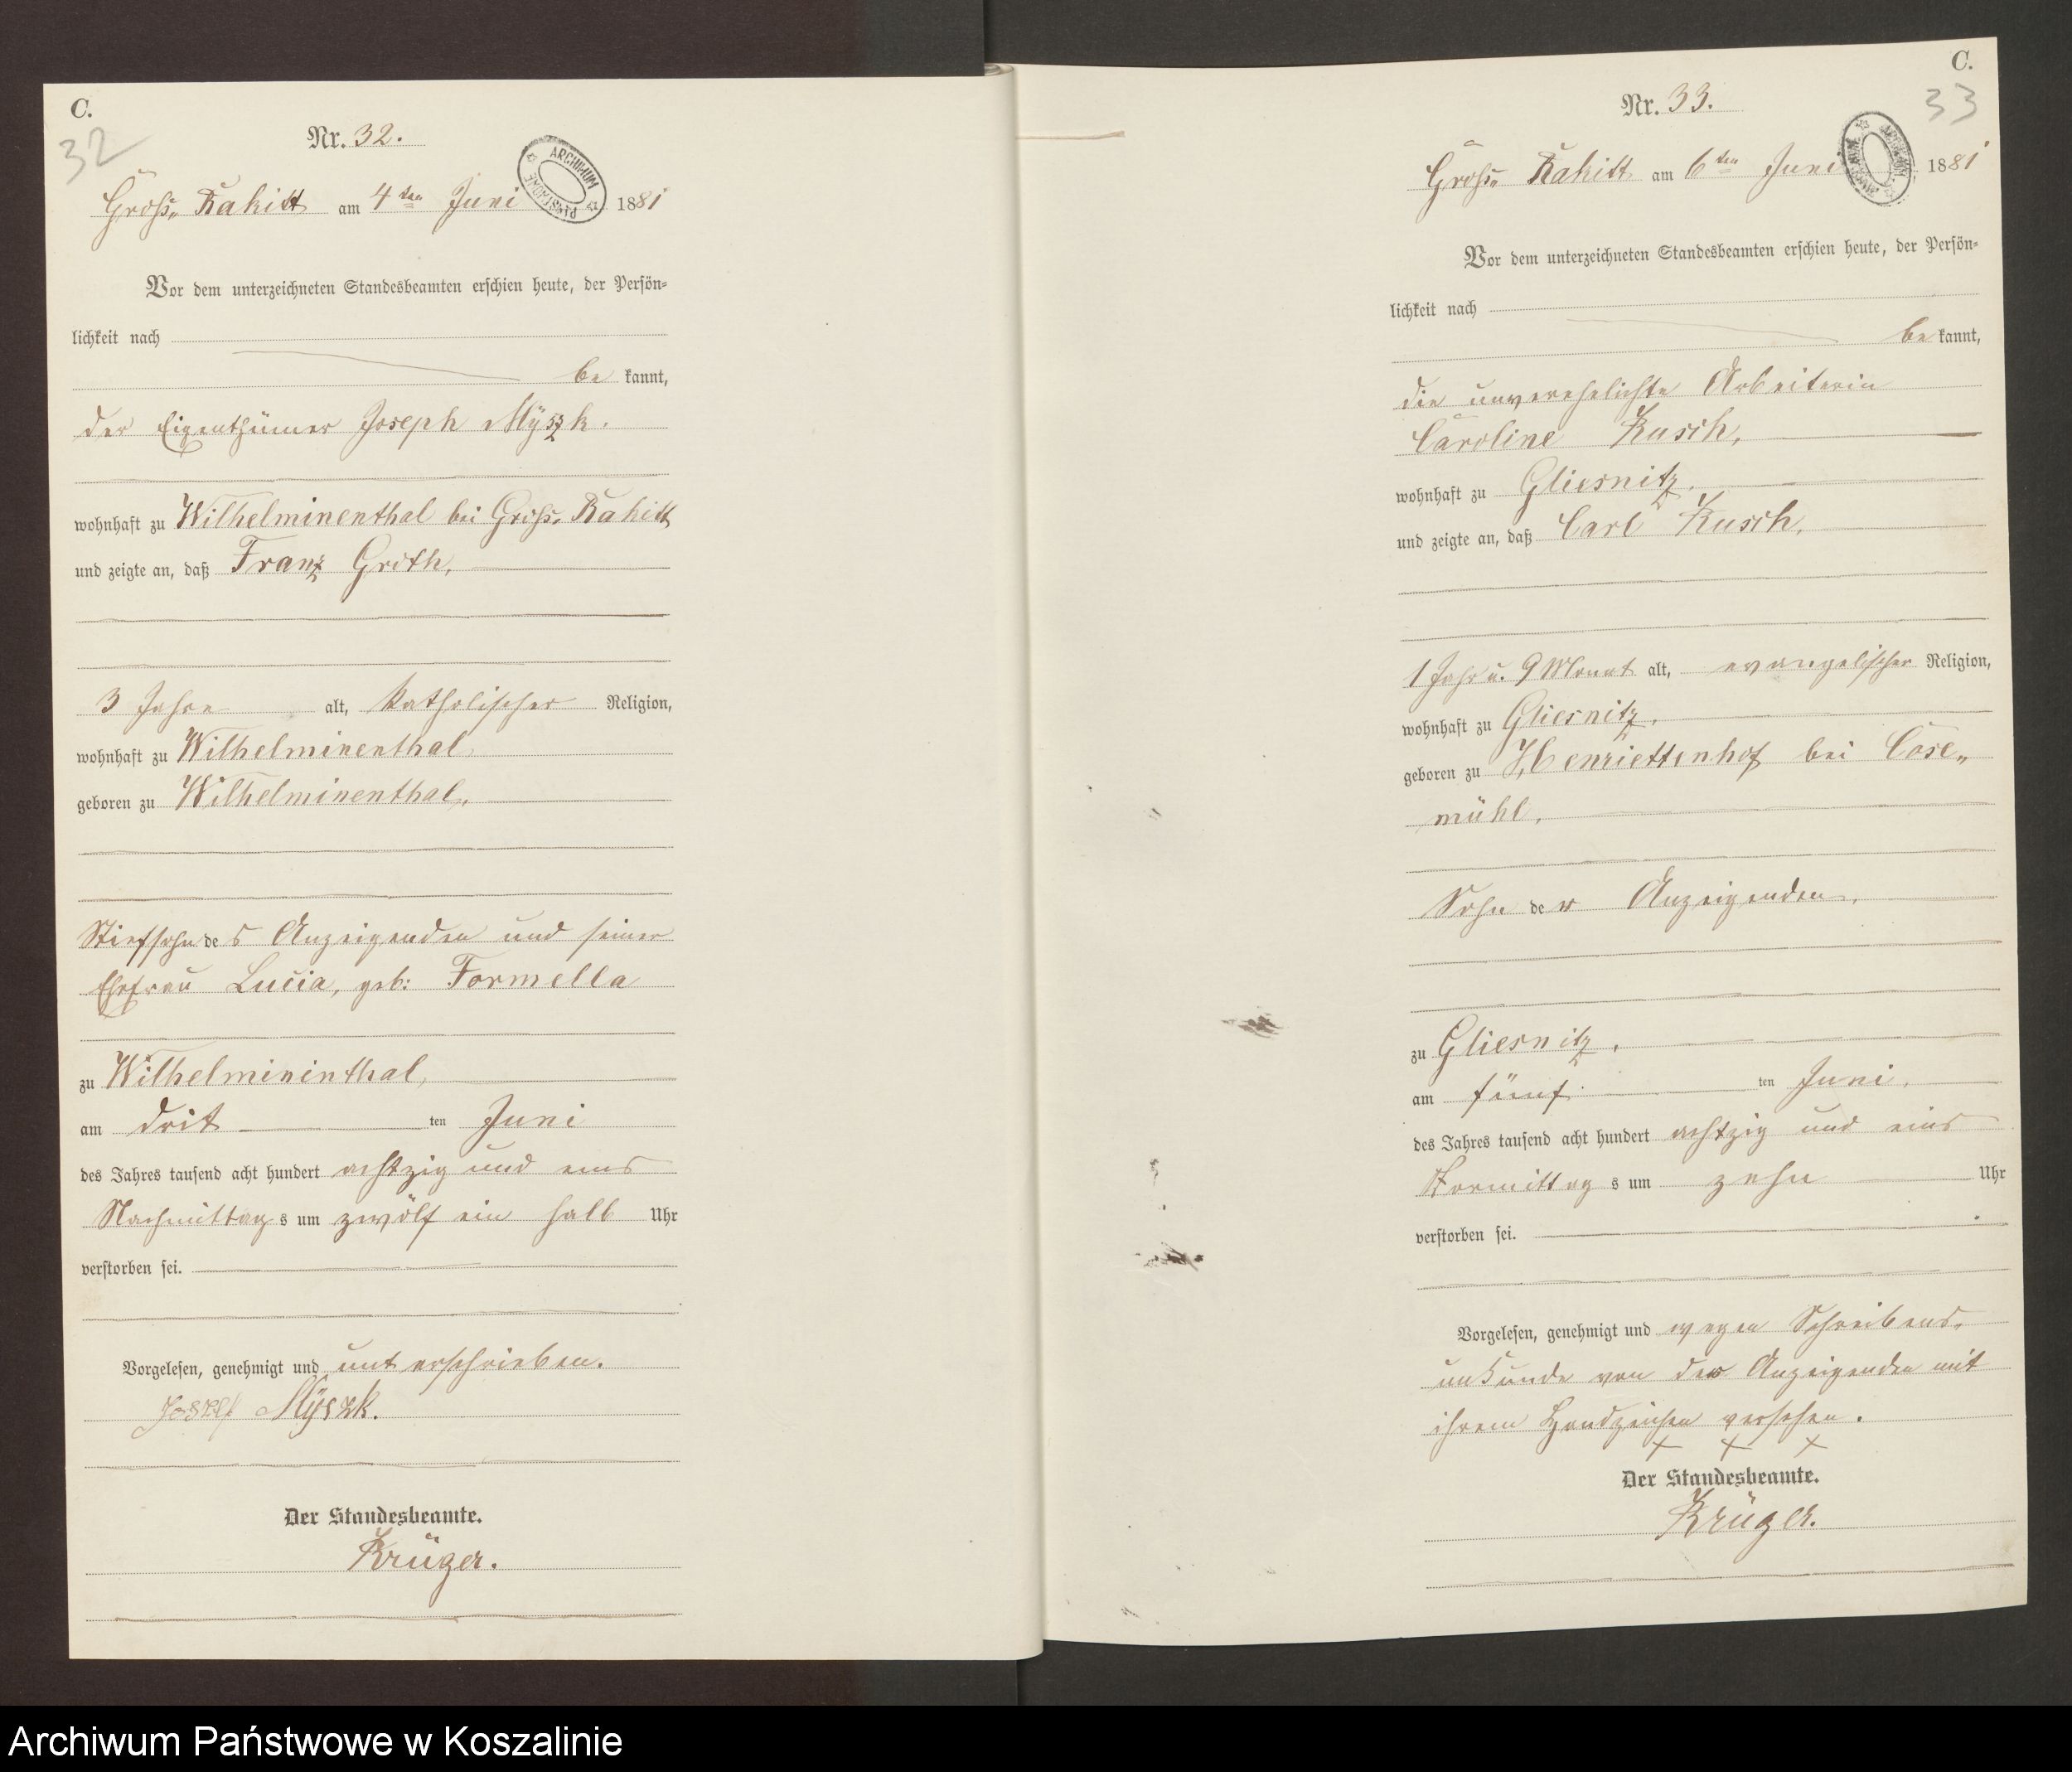 C.
32
Nr. 32.
ARCHIWUM PAŃSTWOWE
Groß„ Rakitt am 4ten Juni 1881
Vor dem unterzeichneten Standesbeamten erschien heute, der Persön-
lichkeit nach
be kannt,
der Eigenthümer Joseph Myszk.
wohnhaft zu Wilhelminenthal bei Groß„ Rakitt
und zeigte an, daß Franz Groth,
3 Jahre alt, katholischer Religion,
wohnhaft zu Wilhelminenthal
geboren zu Wilhelminenthal,
Stiefsohn des Anzeigenden und seiner
Ehefrau Lucia, geb: Formella
zu Wilhelmininthal,
am drit ten Juni
des Jahres tausend acht hundert achtzig und eins
Nachmittags um zwölf ein halb Uhr
verstorben sei.
Vorgelesen, genehmigt und unterschrieben.
Myszk.
Der Standesbeamte.
Krüger.
C.
33
Nr. 33.
Groß„ Rakitt am 6ten Juni 1881
Vor dem unterzeichneten Standesbeamten erschien heute, der Persön-
lichkeit nach
be kannt,
die unverehelichte Arbeiterin
Caroline Kusch,
wohnhaft zu Gliesnitz.
und zeigte an, daß Carl Kusch,
1 Jahr u. 9 Monat alt, evangelischer Religion,
wohnhaft zu Gliesnitz,
geboren zu Henriettenhof bei Cose„
mühl,
Sohn der Anzeigenden,
zu Gliesnitz,
am fünf ten Juni,
des Jahres tausend acht hundert achtzig und eins
Vormittags um zehn Uhr
verstorben sei.
Vorgelesen, genehmigt und wegen Schreibens„
unkunde von der Anzeigenden mit
ihrem Handzeichen versehen.
x x x
Der Standesbeamte.
Krüger.
Archiwum Państwowe w Koszalinie